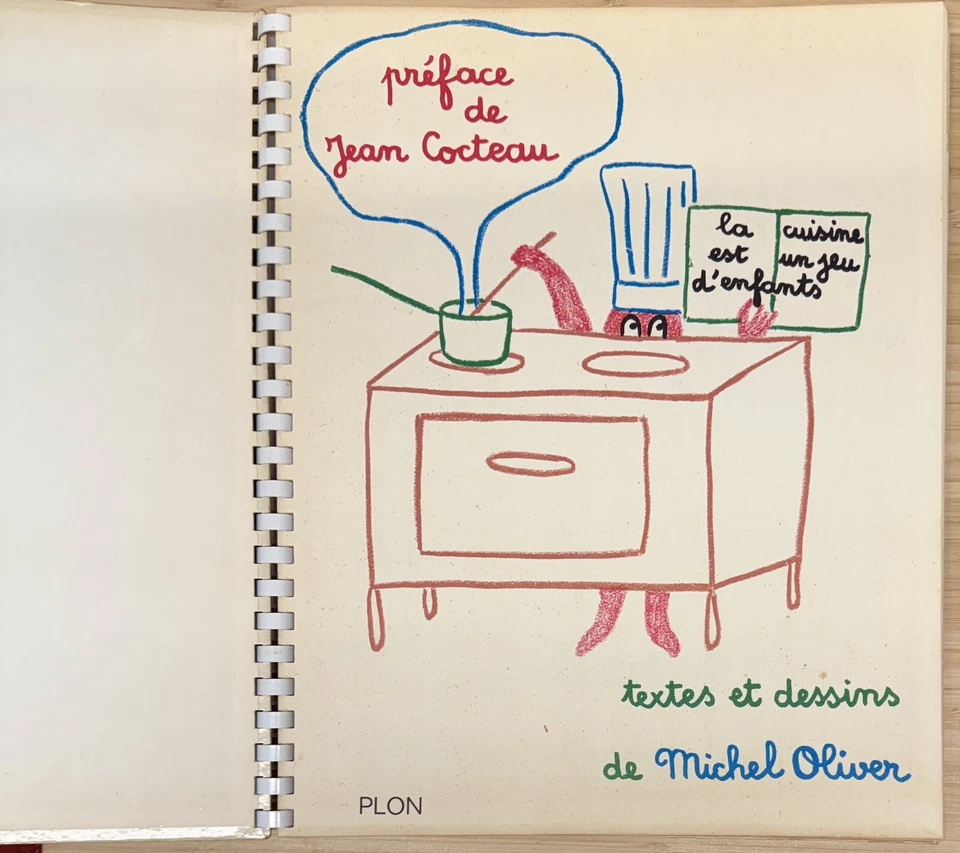 préface
de
Jean Cocteau
la cuisine
est un jeu
d'enfants
textes et dessins
de Michel Oliver
PLON